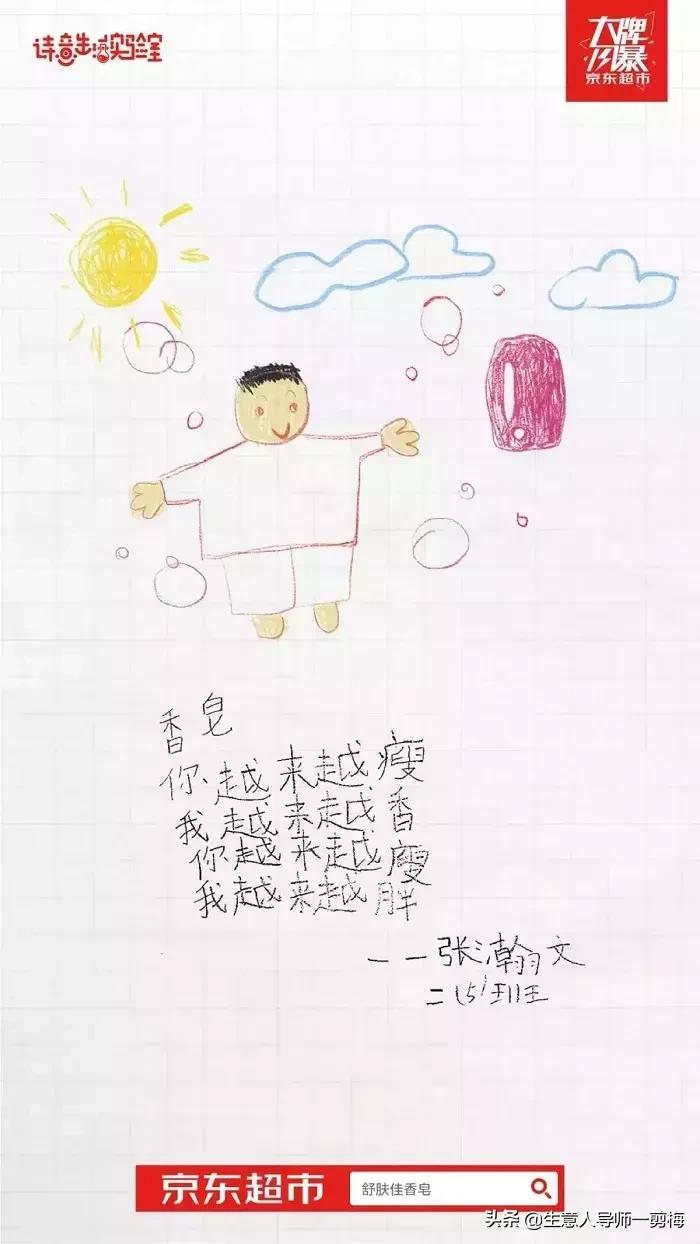 诗意生活实验室
大牌
风暴
京东超市
香皂
你越来越瘦
我越来越香
你越来越廋
我越来越胖
——张瀚文
二(5)班
京东超市 舒肤佳香皂
头条 @生意人导师一剪梅